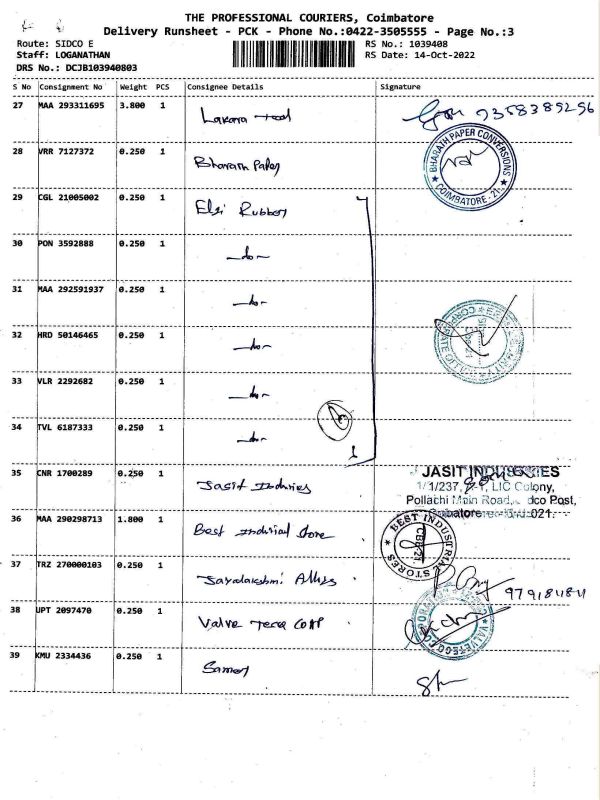 THE PROFESSIONAL COURIERS, Coimbatore
Delivery Runsheet - PCK - Phone No.:0422-3505555 - Page No.:3
Route: SIDCO E
RS No.: 1039408
Staff: LOGANATHAN
RS Date: 14-Oct-2022
DRS No.: DCJB103940803
S No Consignment No Weight PCS Consignee Details Signature
27 MAA 293311695 3.800 1
28 VRR 7127372 0.250 1 Bharath Paper
BHARATH PAPER CONVERSIONS
COIMBATORE - 21
29 CGL 21005002 0.250 1 Elgi Rubber
30 PON 3592888 0.250 1 -do-
31 MAA 292591937 0.250 1 -do-
32 HRD 50146465 0.250 1 -do-
33 VLR 2292682 0.250 1 -do-
34 TVL 6187333 0.250 1 -do-
35 CNR 1700289 0.250 1 Jasit Industries
JASIT INDUSTRIES
LIC Colony,
Pollachi Main Road,
36 MAA 290298713 1.800 1 Best Industrial Store
BEST INDUSTRIAL STORES
CBE-21
37 TRZ 270000103 0.250 1
38 UPT 2097470 0.250 1 Valve Tech Corp
39 KMU 2334436 0.250 1